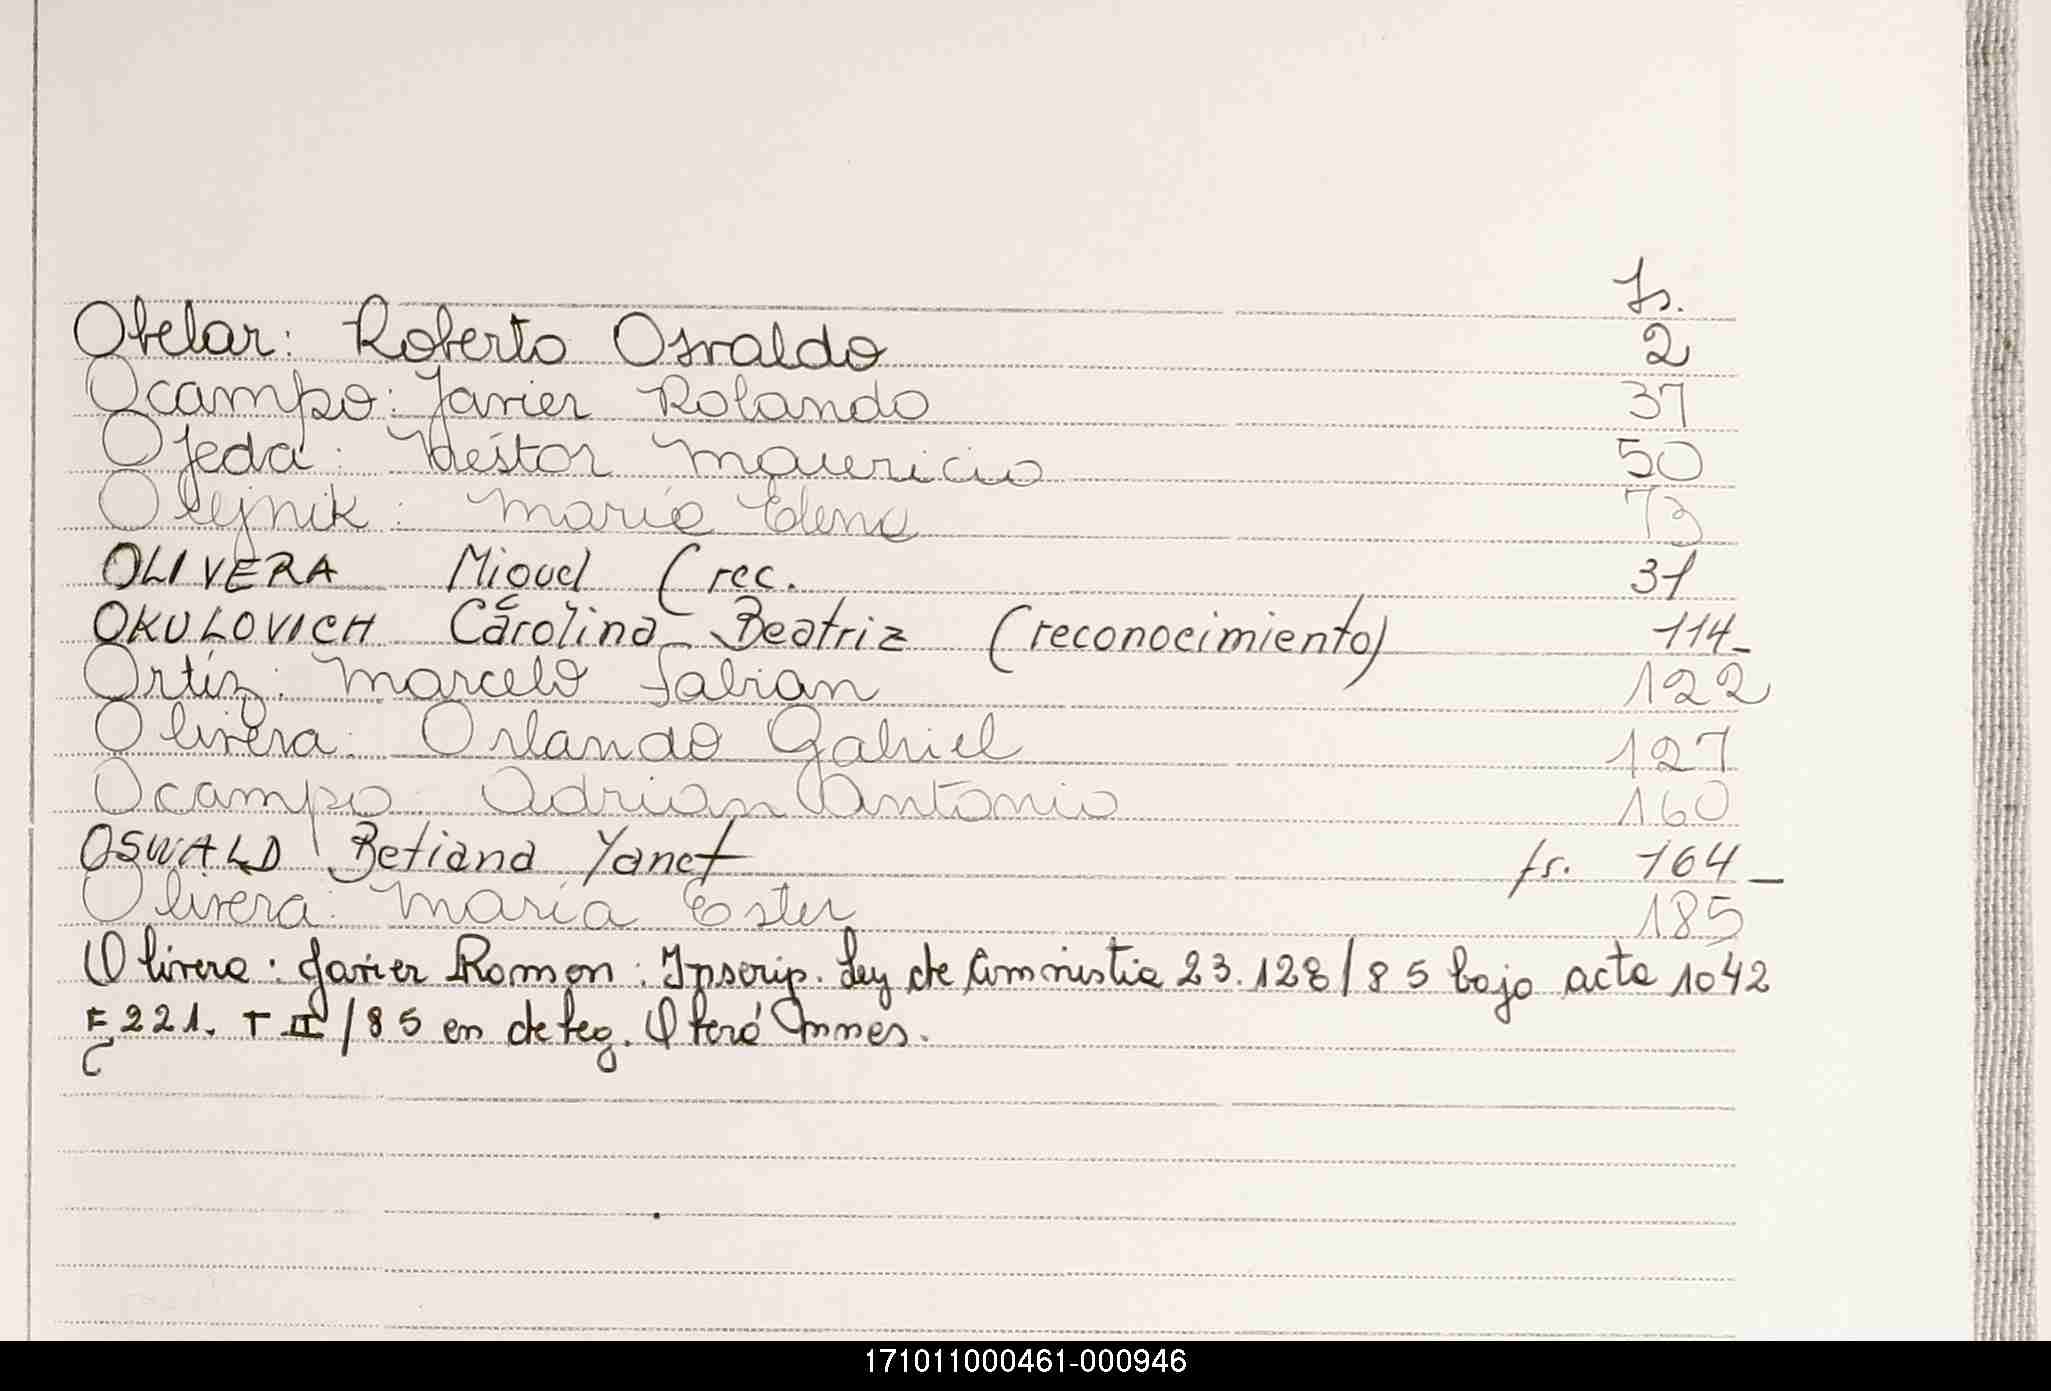 fs.
Obelar: Roberto Osvaldo 2
Ocampo: Javier Rolando 37
Ojeda: Néstor Mauricio 50
Olejnik: María Elena 73
OLIVERA Miguel (rec. 31
OKULOVICH Carolina Beatriz (reconocimiento) 114_
Ortíz: Marcelo Fabian 122
Olivera: Orlando Gabriel 127
Ocampo Adrian Antonio 160
OSWALD Betiana Yanet fs. 164_
Olivera: María Ester 185
Olivera: Javier Ramon: Inscrip. Ley de Amnistia 23.128/85 bajo acta 1042
F 221. T II/85 en deleg. Oberá Mnes.
171011000461-000946